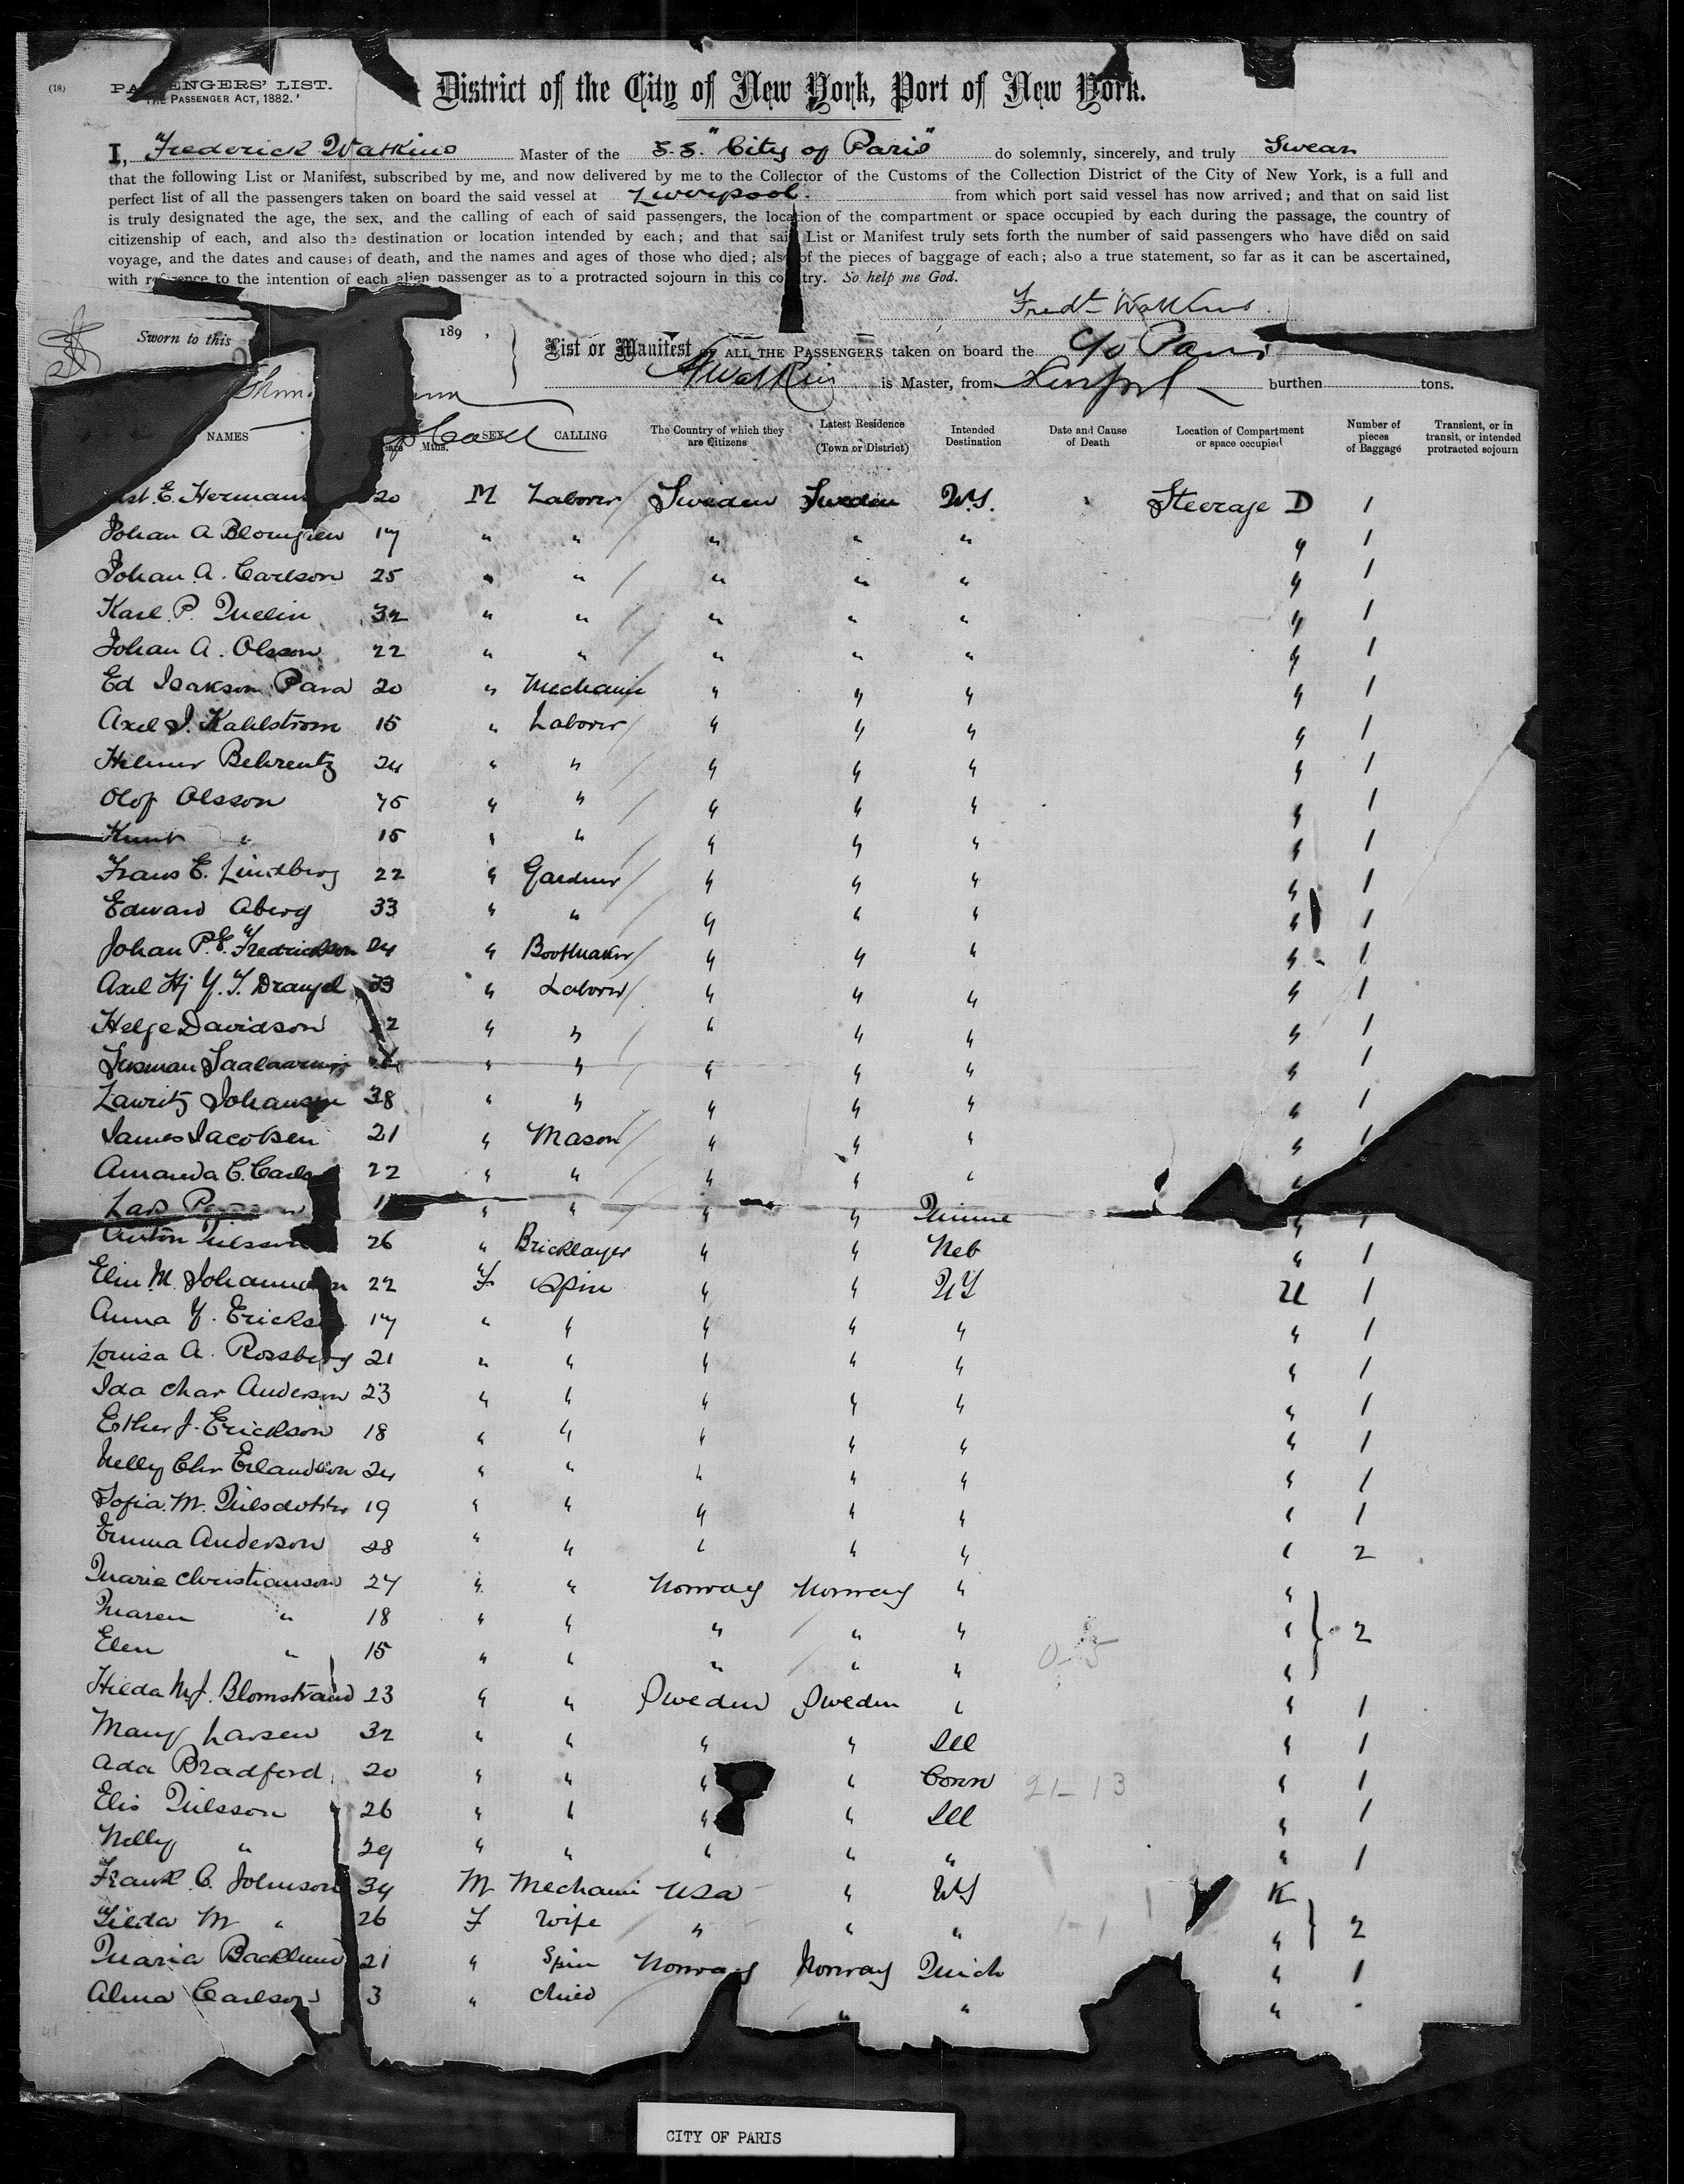 (18)
PASSENGERS' LIST.
THE PASSENGER ACT, 1882.
District of the City of New York, Port of New York.
I, Frederick Watkins Master of the S.S. "City of Paris" do solemnly, sincerely, and truly Swear
that the following List or Manifest, subscribed by me, and now delivered by me to the Collector of the Customs of the Collection District of the City of New York, is a full and
perfect list of all the passengers taken on board the said vessel at Liverpool. from which port said vessel has now arrived; and that on said list
is truly designated the age, the sex, and the calling of each of said passengers, the location of the compartment or space occupied by each during the passage, the country of
citizenship of each, and also the destination or location intended by each; and that said List or Manifest truly sets forth the number of said passengers who have died on said
voyage, and the dates and causes of death, and the names and ages of those who died; also of the pieces of baggage of each; also a true statement, so far as it can be ascertained,
with reference to the intention of each alien passenger as to a protracted sojourn in this country. So help me God.
Fredk Watkins.
Sworn to this 189 ,
List or Manifest OF ALL THE PASSENGERS taken on board the C/o Paris
F Watkins is Master, from Liverpool burthen tons.
NAMES Years Mths. SEX CALLING The Country of which they are Citizens Latest Residence (Town or District) Intended Destination Date and Cause of Death Location of Compartment or space occupied Number of pieces of Baggage Transient, or in transit, or intended protracted sojourn
E. Herman 20 M Laborer Sweden Sweden N.Y. Steerage D 1
Johan A Blomgren 17 " " " " " " 1
Johan A. Carlson 25 " " " " " " 1
Karl. P. 32 " " " " " " 1
Johan A. Olsson 22 " " " " " " 1
Ed Isakson Para 20 " Mechanic " " " " 1
Axel J. Kahlstrom 15 " Laborer " " " " 1
Helmer Behrentz 24 " " " " " " 1
Olof Olsson 45 " " " " " " 1
Knut " 15 " " " " " " 1
Frans E. Lindberg 22 " Gardner " " " " 1
Edward Aberg 33 " " " " " " 1
Johan P.E. Fredrickson 24 " Bootmaker " " " " 1
Axel Hj Y. T. Drangel 33 " Laborer " " " " 1
Helge Davidson 22 " " " " " " 1
" " " " " " 1
Lawritz Johansen 38 " " " " " " 1
James Jacobsen 21 " Mason " " " " 1
Amanda C. Carls 22 " " " " " "
Lars " " " " Minne " 1
Anton Nilsson 26 " Bricklayer " " Neb " 1
Elin M. Johannesson 22 F Spin " " NY U 1
Anna Y. Erickson 17 " " " " " " 1
Louisa A. Rossberg 21 " " " " " " 1
Ida Char Anderson 23 " " " " " " 1
Esther J. Erickson 18 " " " " " " 1
Nelly Chr Erlandson 24 " " " " " " 1
Sofia. M. Nilsdotter 19 " " " " " " 1
Emma Anderson 28 " " " " " " 2
Maria Christianson 24 " " Norway Norway " "
Maren " 18 " " " " " " 2
Elen " 15 " " " " " "
Hilda M.J. Blomstrand 23 " " Sweden Sweden " " 1
Mary Larsen 32 " " " " Ill " 1
Ada Bradford 20 " " " " Conn 21-13 " 1
Elis Nilsson 26 " " " " Ill " 1
Nelly " 29 " " " " " " 1
Frank C. Johnson 34 M Mechanic USA " NY K
Tilda M " 26 F Wife " " " " 2
Maria Backlund 21 " Spin Norway Norway Mich " 1
Alma Carlson 3 " Child " " "
CITY OF PARIS